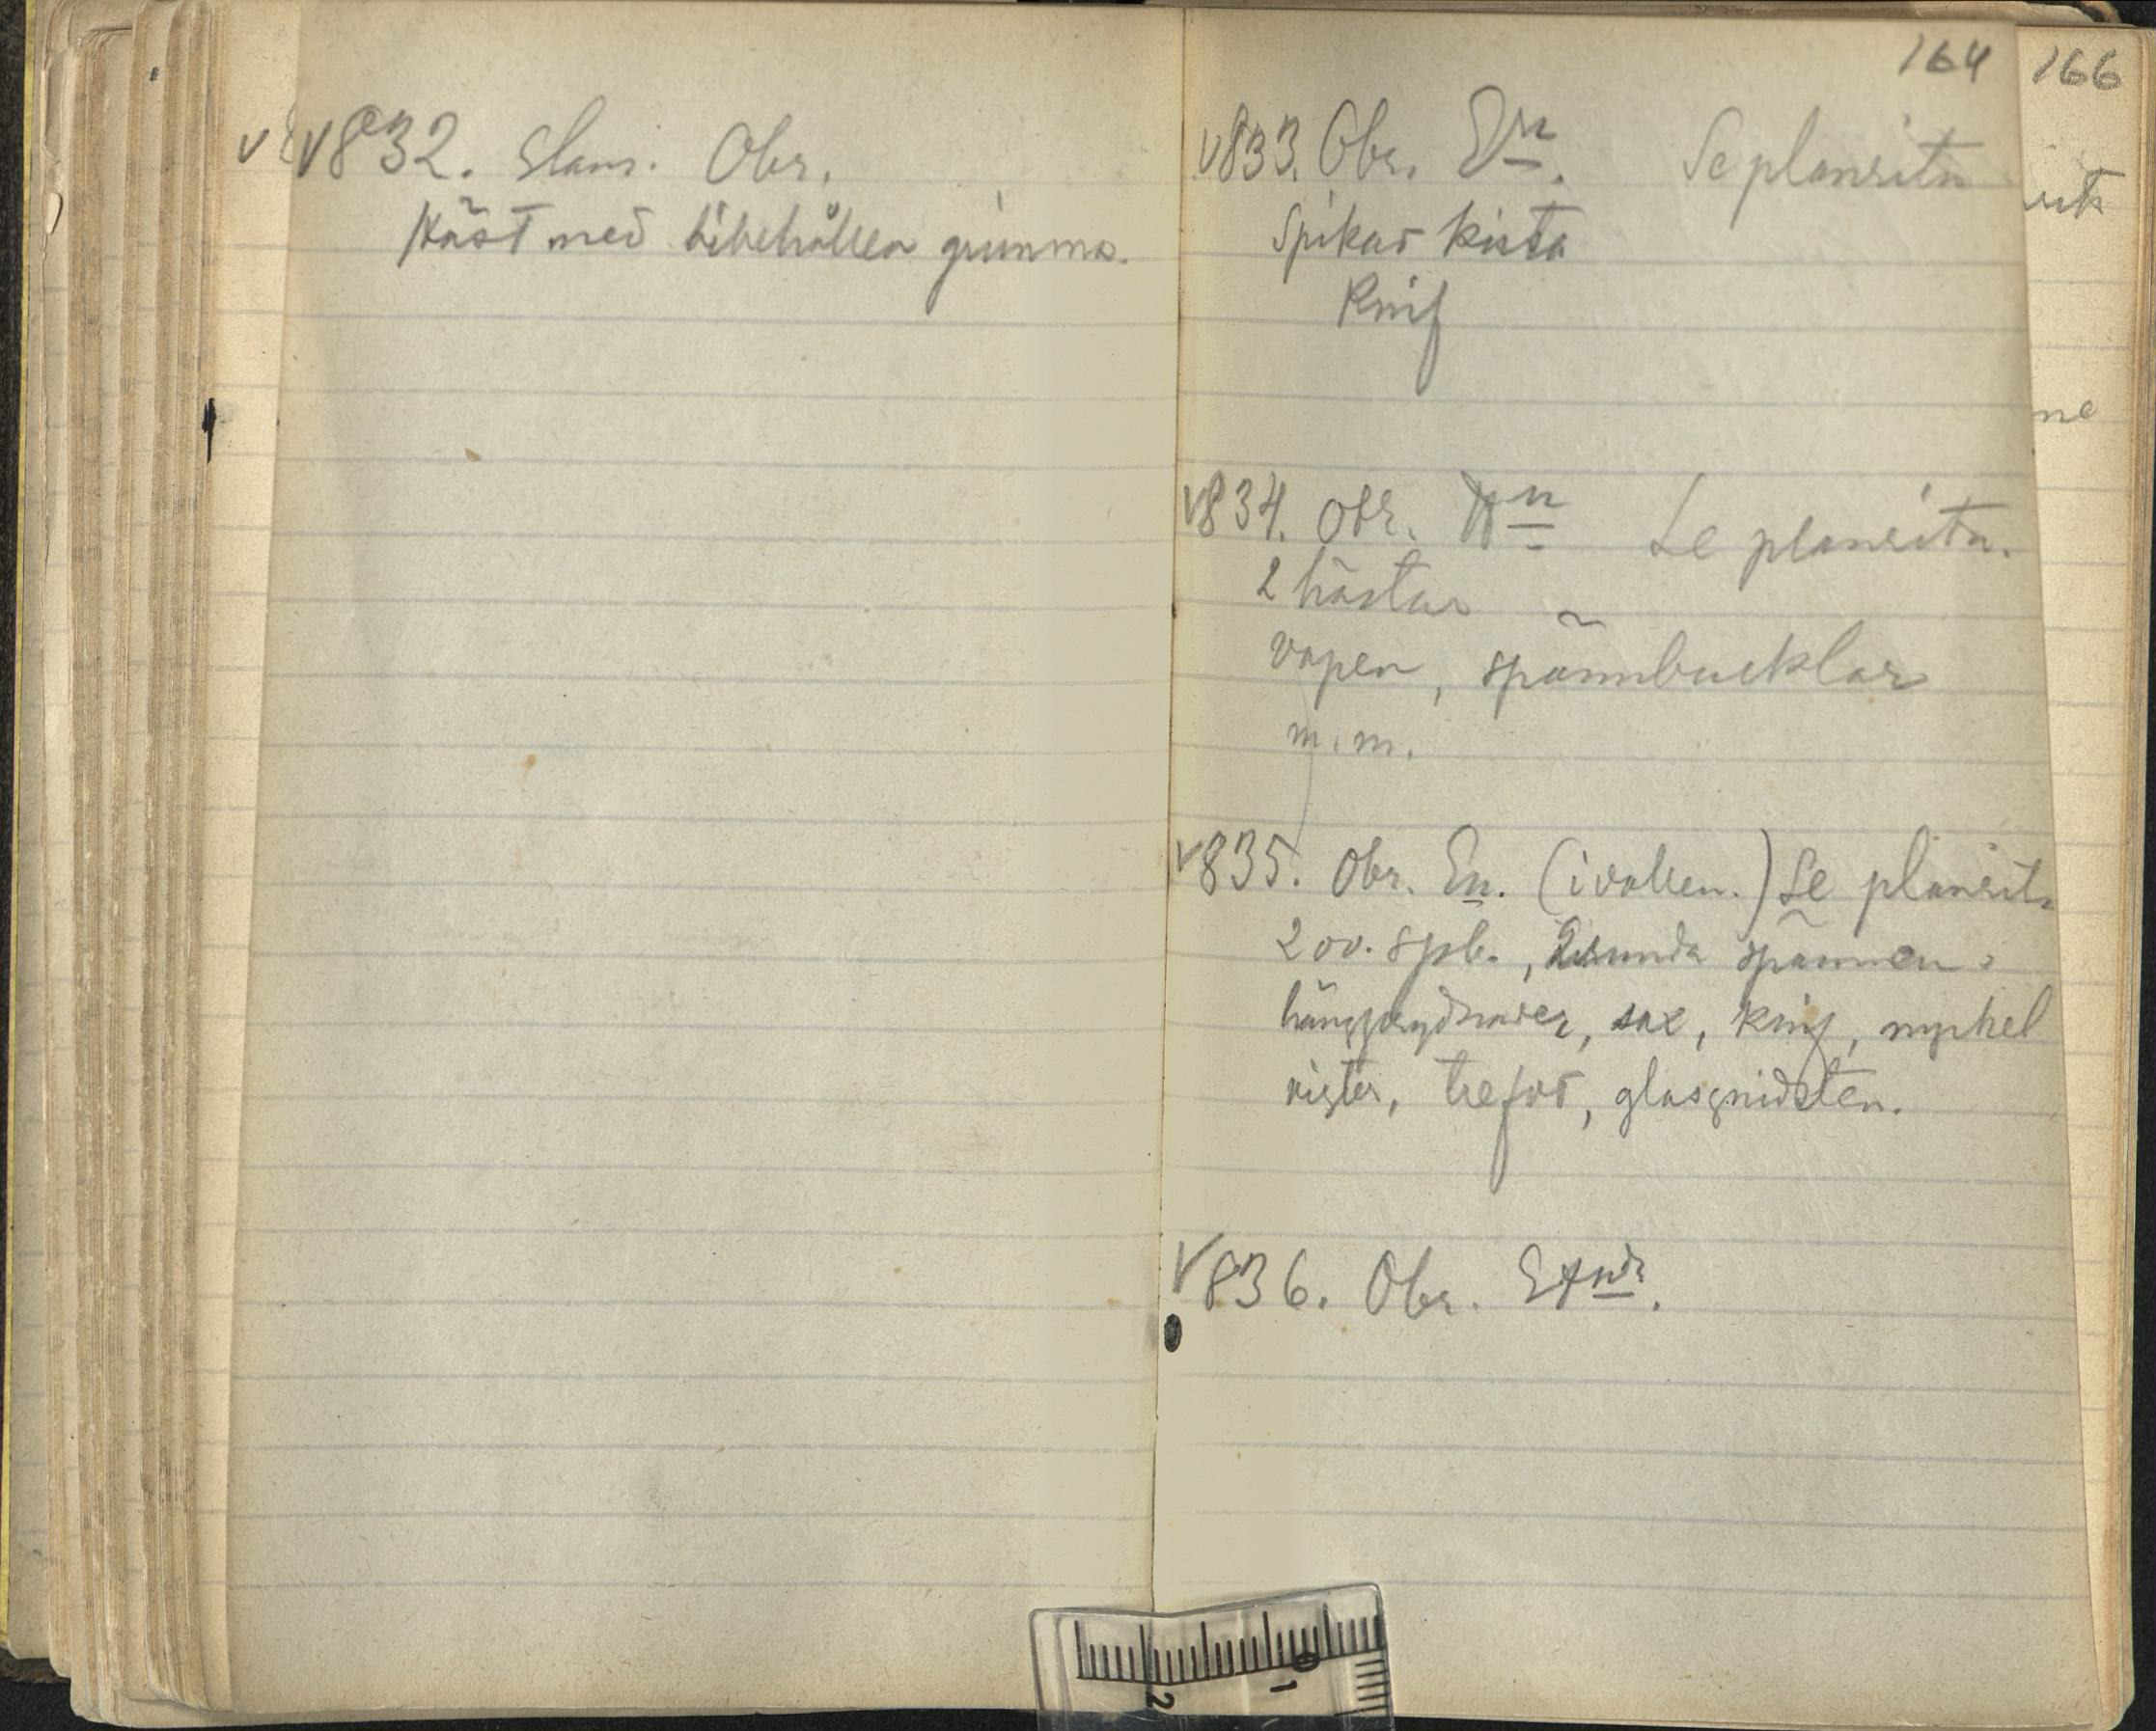 v 832. Slam. Obr.
Häst med bibehållen grimma.
164
v 833. Obr. Se planritn
Spikad kista
Knif
v 834. Obr. Se planritn.
2 hästar
vapen, spännbucklar
m.m.
v 835. Obr. En. (i vallen.) Se planritn
2 ov. spb., 2 runda spännen
hängprydnader, sax, knif, nyckel
vigter, trefot, glasgnidsten.
v 836. Obr.
166